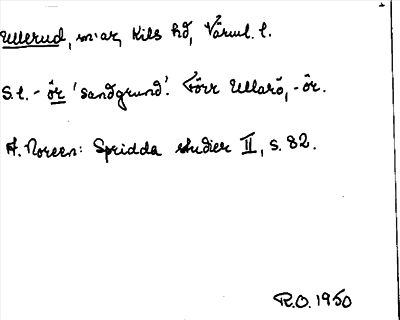 Ullerud, sn: ar, Kils hd, Värml. l.
S.l. - ör 'sandgrund'. Förr Ullarö, -ör.
A. Noreen: Spridda studier II, s. 82.
R.O. 1950